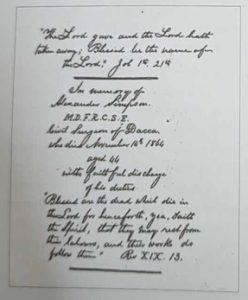 "The Lord gave and the Lord hath
taken away; Blessed be the name of
the Lord." Job 1st 21st
In memory of
Alexander Simpson.
M.D.F.R.C.S.E.
Civil Surgeon of Dacca.
who died November 10th 1864
aged 44
with faithful discharge
of his duties
"Blessed are the dead which die in
the Lord for henceforth, yea, saith
the Spirit, that they may rest from
their labours, and their works do
follow them" Rev XIX. 13.